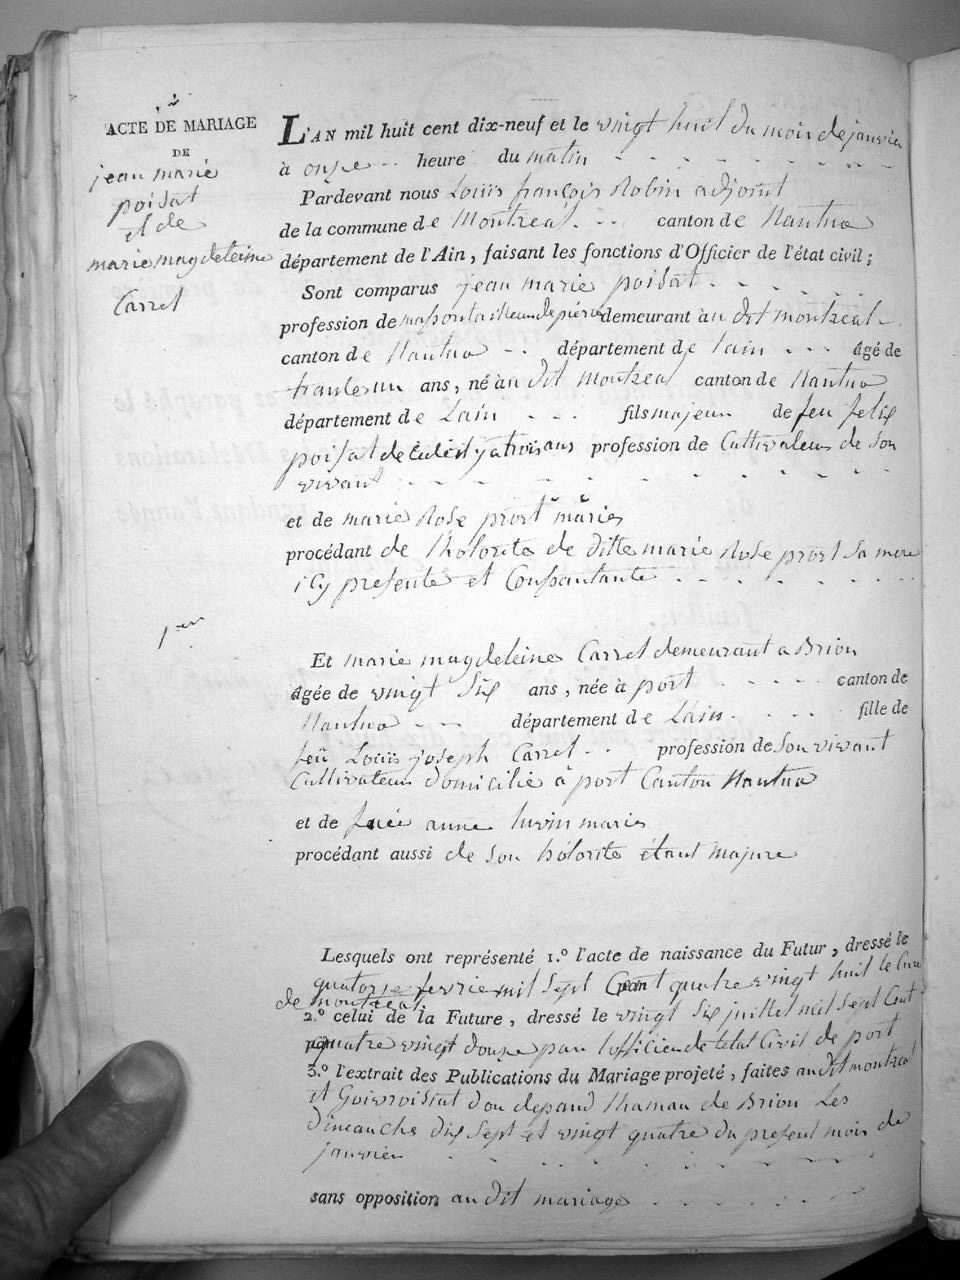 ACTE DE MARIAGE
DE
jean marie
poisat
et de
marie magdeleine
Carret
L'AN mil huit cent dix-neuf et le vingt huit du mois de janvier
à onze heure du matin
Pardevant nous Louis françois Robin adjoint
de la commune de Montreal canton de Nantua
département de l'Ain, faisant les fonctions d'Officier de l'état civil;
Sont comparus jean marie poisat
profession de masson tailleur de pierre demeurant au dit montreal
canton de Nantua département de Lain âgé de
trante un ans, né au dit Montreal canton de Nantua
département de Lain fils majeur de feu felix
poisat décédé il y a trois ans profession de Cultivateur de son
vivant
et de marie Rose prost mariés
procédant de l'hotorité de ditte marie Rose prost sa mere
icy presente et Consantante
1er
Et marie magdeleine Carret demeurant a Brion
âgée de vingt six ans, née à port canton de
Nantua département de Lain fille de
feû Louis joseph Carret profession de son vivant
Cultivateur domicilié à port Canton Nantua
et de anne mariés
procédant aussi de son hotorité étant majure
Lesquels ont représenté 1.º l'acte de naissance du Futur, dressé le
quatorze fevrie mil sept Cent quatre vingt huit le Cure
de montreal
2.º celui de la Future, dressé le vingt six juillet mil sept Cent
quatre vingt douze par l'officier de l'état Civil de port
3.º l'extrait des Publications du Mariage projeté, faites au dit montreal
et de Brion Les
Dimanche dix sept et vingt quatre du present mois de
janvier
sans opposition au dit mariage